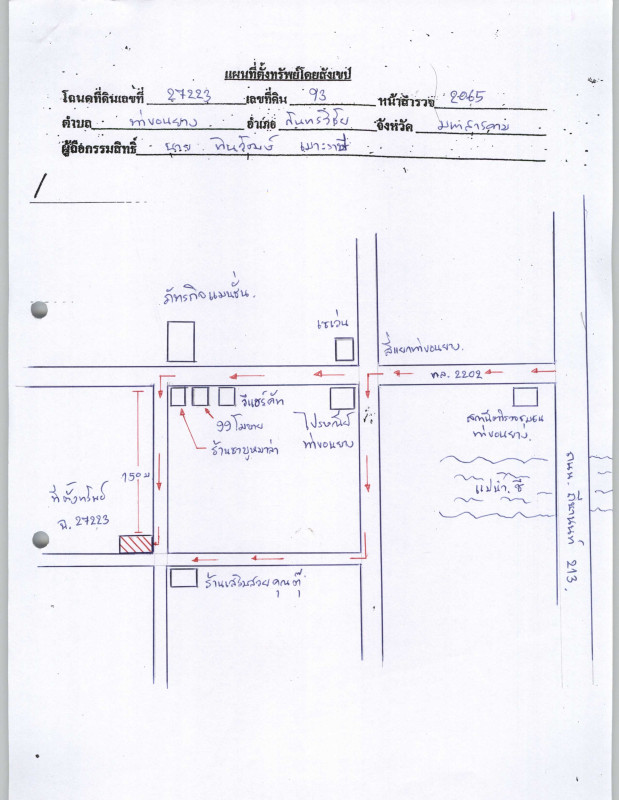 แผนที่ตั้งทรัพย์โดยสังเขป
โฉนดที่ดินเลขที่ 27223 เลขที่ดิน 93 หน้าสำรวจ 2065
ตำบล ท่าขอนยาง อำเภอ กันทรวิชัย จังหวัด มหาสารคาม
ผู้ถือกรรมสิทธิ์ นาย
ภัทรกิจแมนชั่น.
เซเว่น
สี่แยกท่าขอนยาง.
ทล. 2202
จีแฮร์คัท
99 โมบาย
ร้านชาบูหมาล่า
ไปรษณีย์
ท่าขอนยาง
สถานีตำรวจชุมชน
ท่าขอนยาง.
แม่น้ำ ชี
150 ม
ที่ตั้งทรัพย์
ฉ. 27223
ถนน. ถีนานนท์ 213.
ร้านเสริมสวยคุณตุ๊